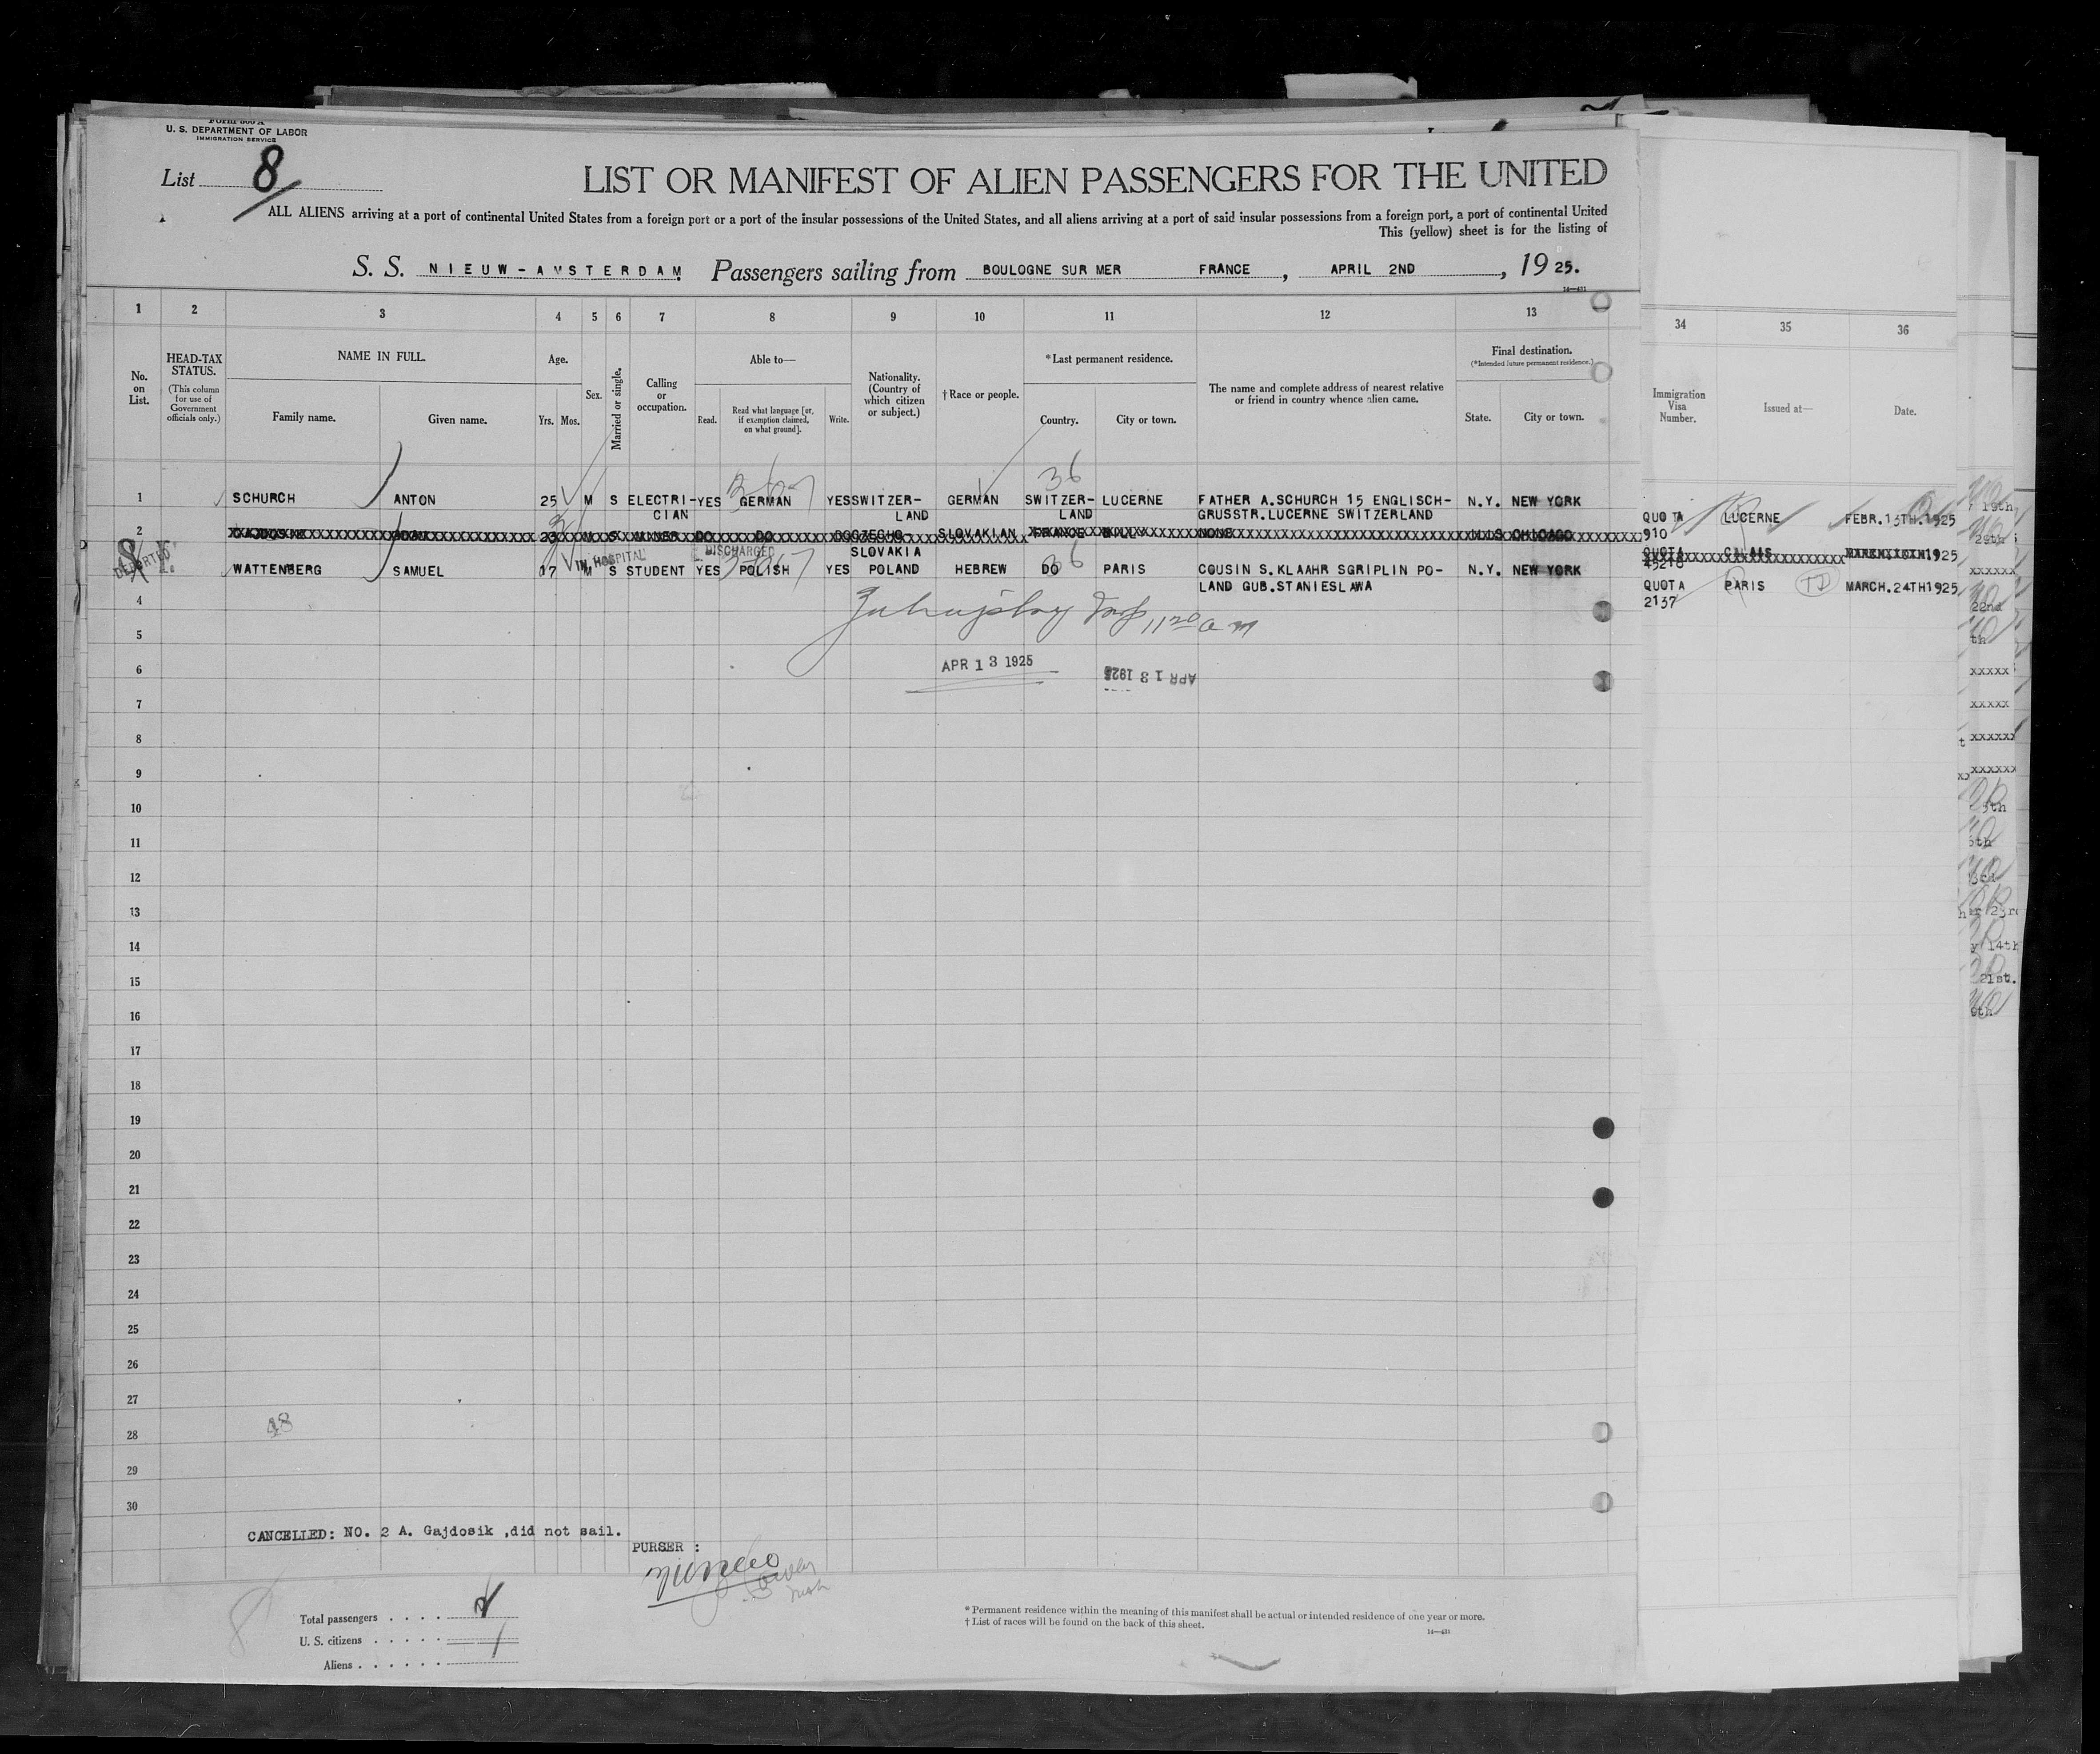 Form 500 A
U. S. DEPARTMENT OF LABOR
IMMIGRATION SERVICE
List 8
LIST OR MANIFEST OF ALIEN PASSENGERS FOR THE UNITED
ALL ALIENS arriving at a port of continental United States from a foreign port or a port of the insular possessions of the United States, and all aliens arriving at a port of said insular possessions from a foreign port, a port of continental United
This (yellow) sheet is for the listing of
S. S. NIEUW-AMSTERDAM. Passengers sailing from BOULOGNE SUR MER FRANCE , APRIL 2ND , 19 25.
14—431
1 2 3 4 5 6 7 8 9 10 11 12 13 34 35 36
No. on List.
HEAD-TAX STATUS.
(This column for use of Government officials only.)
NAME IN FULL.
Family name. Given name.
Age.
Yrs. Mos.
Sex.
Married or single.
Calling or occupation.
Able to—
Read. Read what language [or, if exemption claimed, on what ground]. Write.
Nationality. (Country of which citizen or subject.)
† Race or people.
*Last permanent residence.
Country. City or town.
The name and complete address of nearest relative or friend in country whence alien came.
Final destination.
(*Intended future permanent residence.)
State. City or town.
Immigration Visa Number.
Issued at—
Date.
36
1 SCHURCH ANTON 25 M S ELECTRI- YES GERMAN YES SWITZER- GERMAN SWITZER- LUCERNE FATHER A.SCHURCH 15 ENGLISCH- N.Y. NEW YORK
CIAN LAND LAND GRUSSTR.LUCERNE SWITZERLAND QUOTA LUCERNE FEBR.13TH.1925
910
2 23 M S MINER DO DO DO CZECHO- SLOVAKIAN FRANCE NONE ILLS CHICAGO
SLOVAKIA QUOTA CALAIS 1925
DEPARTED
IN HOSPITAL
DISCHARGED
WATTENBERG SAMUEL 17 M S STUDENT YES POLISH YES POLAND HEBREW DO PARIS COUSIN S.KLAAHR SGRIPLIN PO- N.Y. NEW YORK
LAND GUB.STANIESLAWA QUOTA PARIS MARCH.24TH1925
2137
4
5
6 APR 13 1925 APR 13 1925
7
8
9
10
11
12
13
14
15
16
17
18
19
20
21
22
23
24
25
26
27
28 48
29
30
CANCELLED: NO. 2 A. Gajdosik ,did not sail.
PURSER :
Total passengers
U. S. citizens
Aliens
* Permanent residence within the meaning of this manifest shall be actual or intended residence of one year or more.
† List of races will be found on the back of this sheet.
14—431